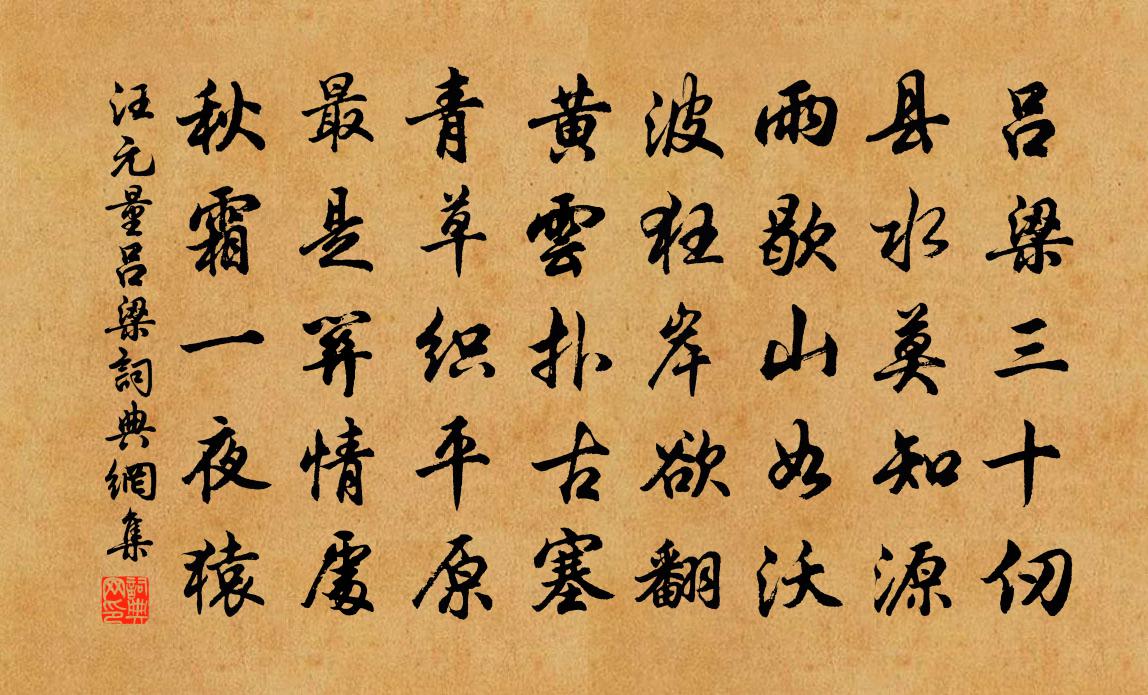 吕梁三十仞
县水莫知源
雨歇山如沃
波狂岸欲翻
黄雲扑古塞
青草织平原
最是羁情處
秋霜一夜猿
汪元量吕梁詞典網集
詞典网印